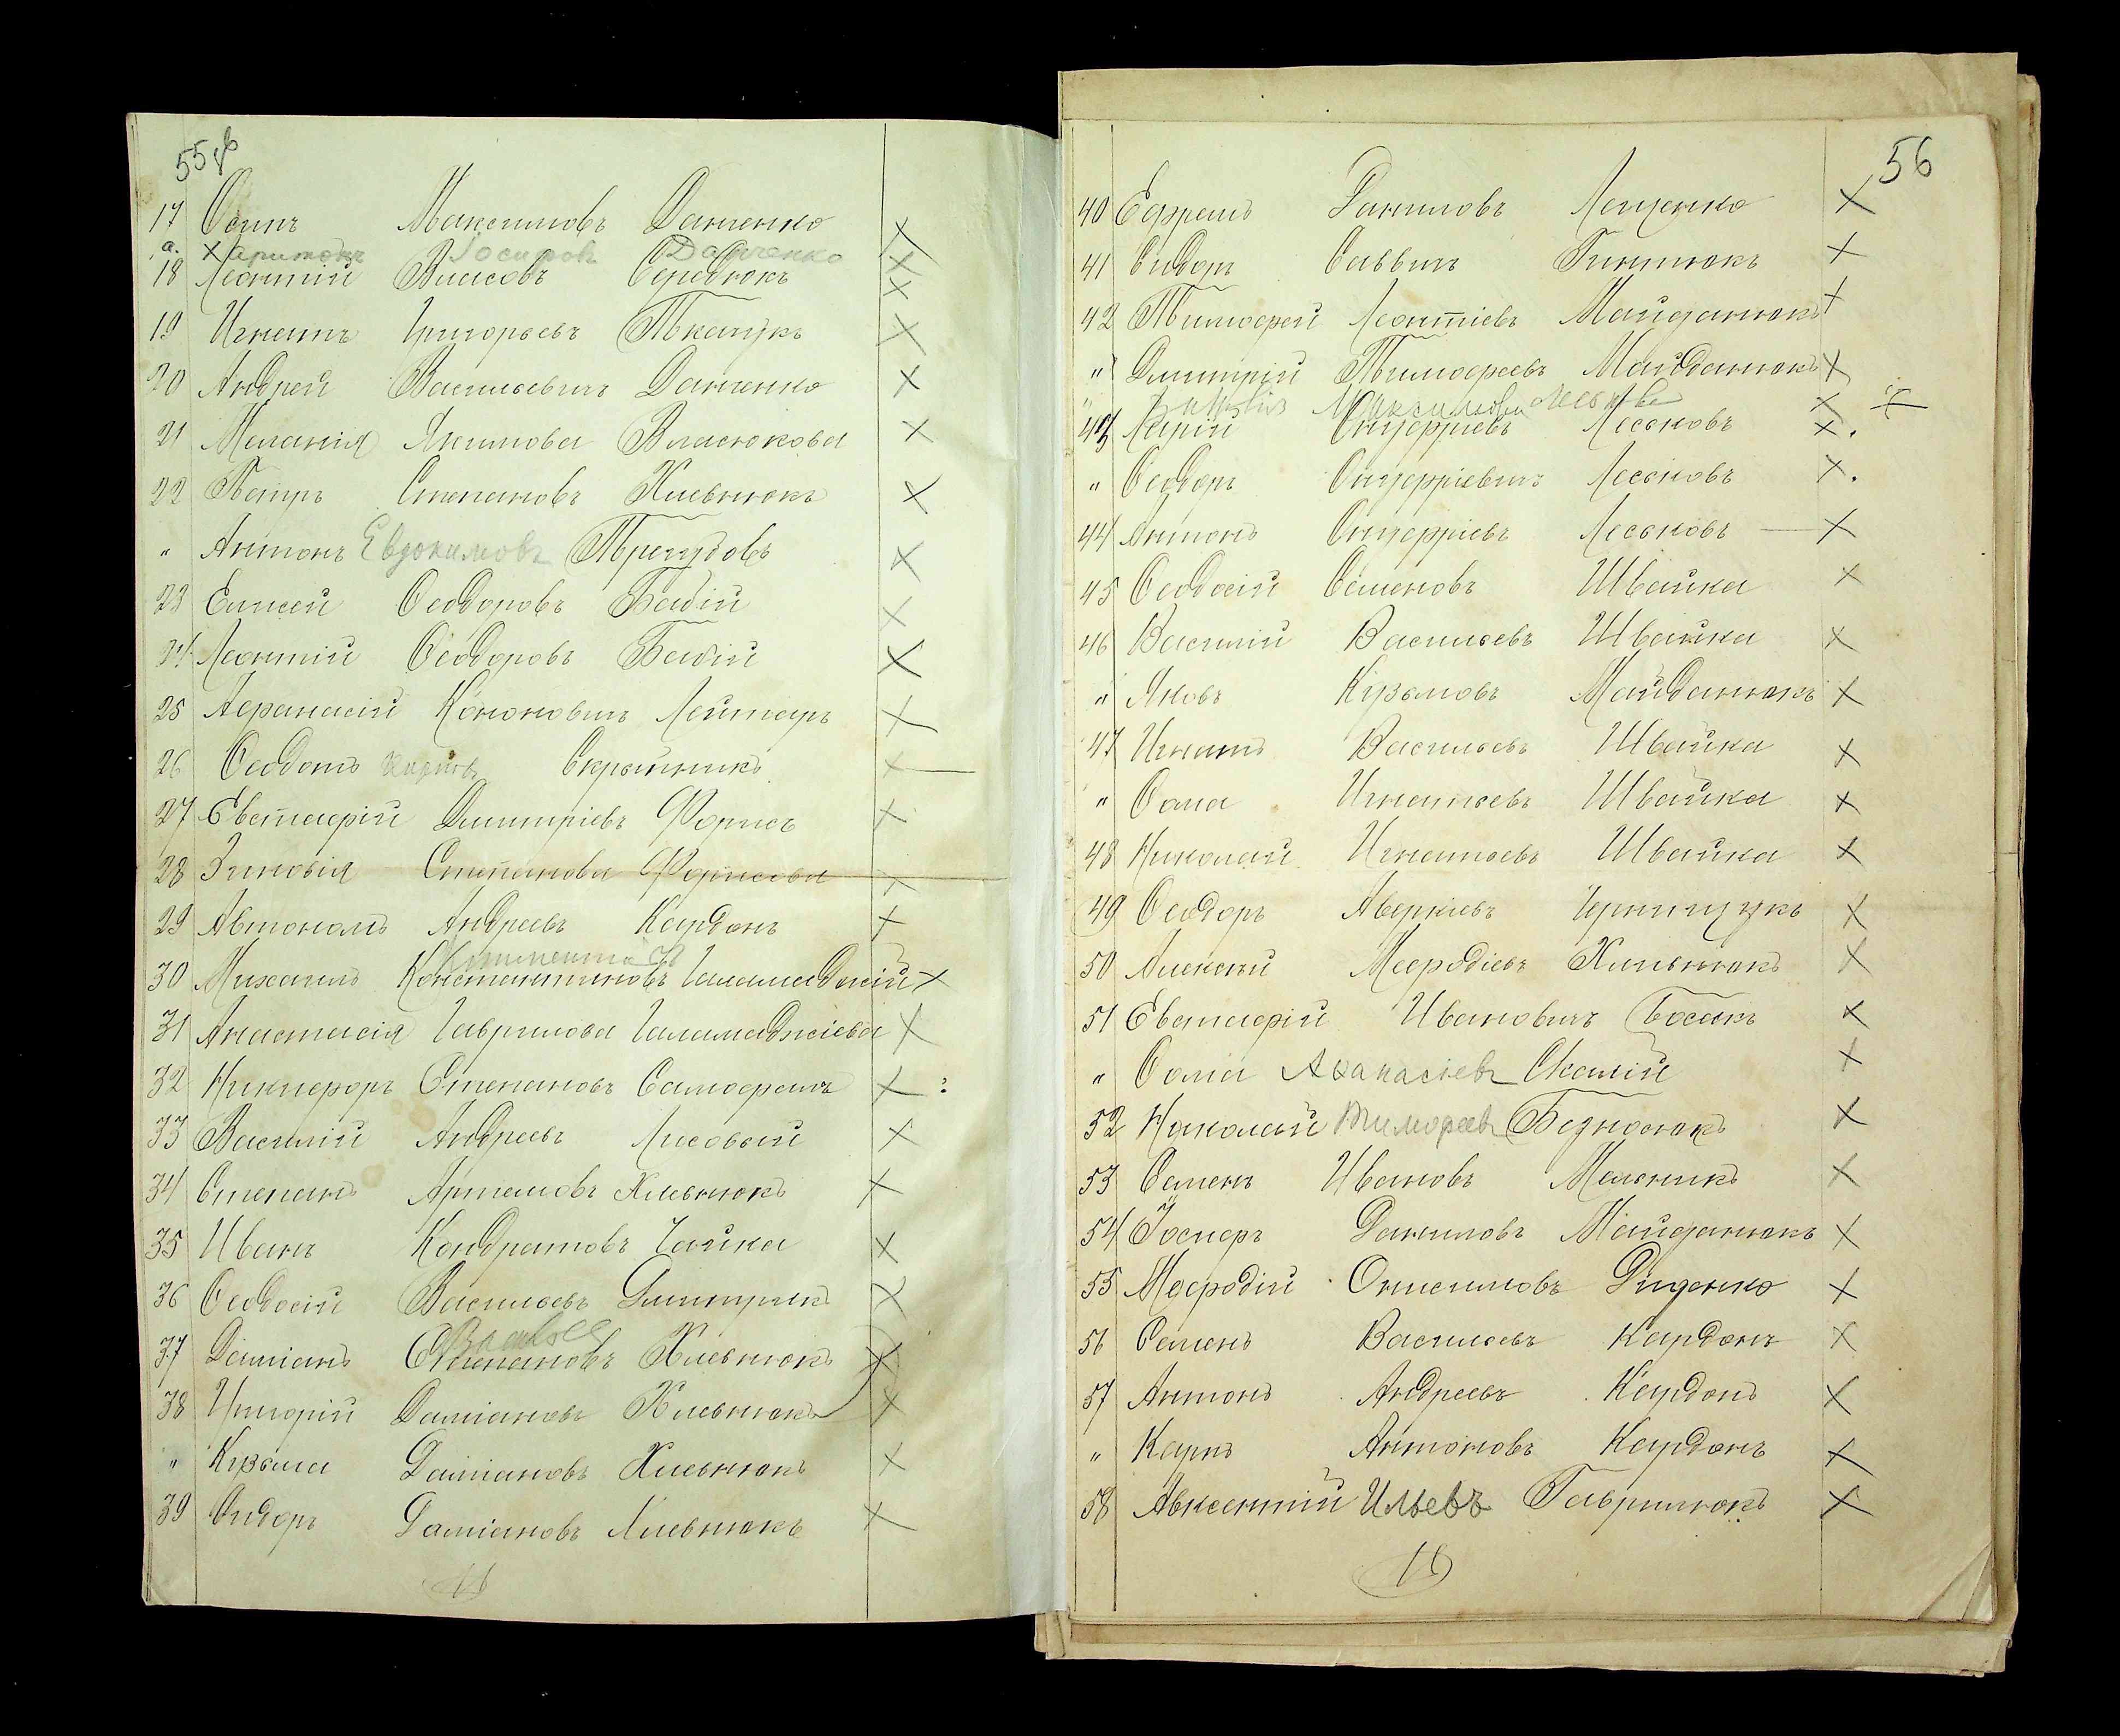 55 об
17 Осипъ Максимовъ Данченко X
а. Харитонъ Іосифовъ Данченко X
18 Леонтій Власовъ Середюкъ X
19 Игнатъ Григорьевъ Ткачукъ X
20 Андрей Васильевичъ Данченко X
21 Меланія Якимова Власюкова X
22 Петръ Степановъ Хлевнюкъ X
" Антонъ Евдокимовъ X
23 Елисей Ѳеодоровъ Бабій X
24 Леонтій Ѳеодоровъ Бабій X
25 Аѳанасій Кононовичъ Лейтаръ X
26 Ѳеодотъ Скрыпникъ X
27 Евстафій Димитріевъ Форисъ X
28 Зиновія Степанова Форисова X
29 Автономъ Андреевъ Кардонъ X
30 Михаилъ Константиновъ Галамаджій X
31 Анастасія Гаврилова Галамаджіева X
32 Никифоръ Степановъ Самофатъ X :
33 Василій Андреевъ Лисовый X
34 Степанъ Артемовъ Хлевнюкъ X
35 Иванъ Кондратовъ Чайка X
36 Ѳеодосій Васильевъ Димитрикъ X
37 Даміанъ Степановъ Хлевнюкъ X
38 Григорій Даміановъ Хлевнюкъ X
" Кузьма Даміановъ Хлевнюкъ X
39 Сидоръ Даміановъ Хлевнюкъ X
56
40 Ефремъ Даниловъ Лещенко X
41 Сидоръ Саввичъ Гнатюкъ X
42 Тимофей Леонтіевъ Майданюкъ X
" Димитрій Тимофеевъ Майданюкъ X
" Максимовъ X
43 Ларій Онуфріевъ Леськовъ X.
" Ѳеодоръ Онуфріевичъ Леськовъ X.
44 Антонъ Онуфріевъ Леськовъ — X
45 Ѳеодосій Семеновъ Швайка X
46 Василій Васильевъ Швайка X
" Яковъ Кузьмовъ Майданюкъ X
47 Игнатъ Васильевъ Швайка X
" Ѳома Игнатьевъ Швайка X
48 Николай Игнатьевъ Швайка X
49 Ѳеодоръ Аверкіевъ Чернищукъ X
50 Алексій Меѳодіевъ Хлевнюкъ X
51 Евстафій Ивановичъ Босакъ X
" Ѳома Аѳанасіевъ Скалій X
52 Николай Тимофеевъ Беднюкъ X
53 Семенъ Ивановъ Мельникъ X
54 Іосифъ Даниловъ Майданюкъ X
55 Меѳодій Онисимовъ Диденко X
56 Семенъ Васильевъ Кардонъ X
57 Антонъ Андреевъ Кардонъ X
" Карпъ Антоновъ Кардонъ X
58 Авксентій Ильевъ Гаврилюкъ X